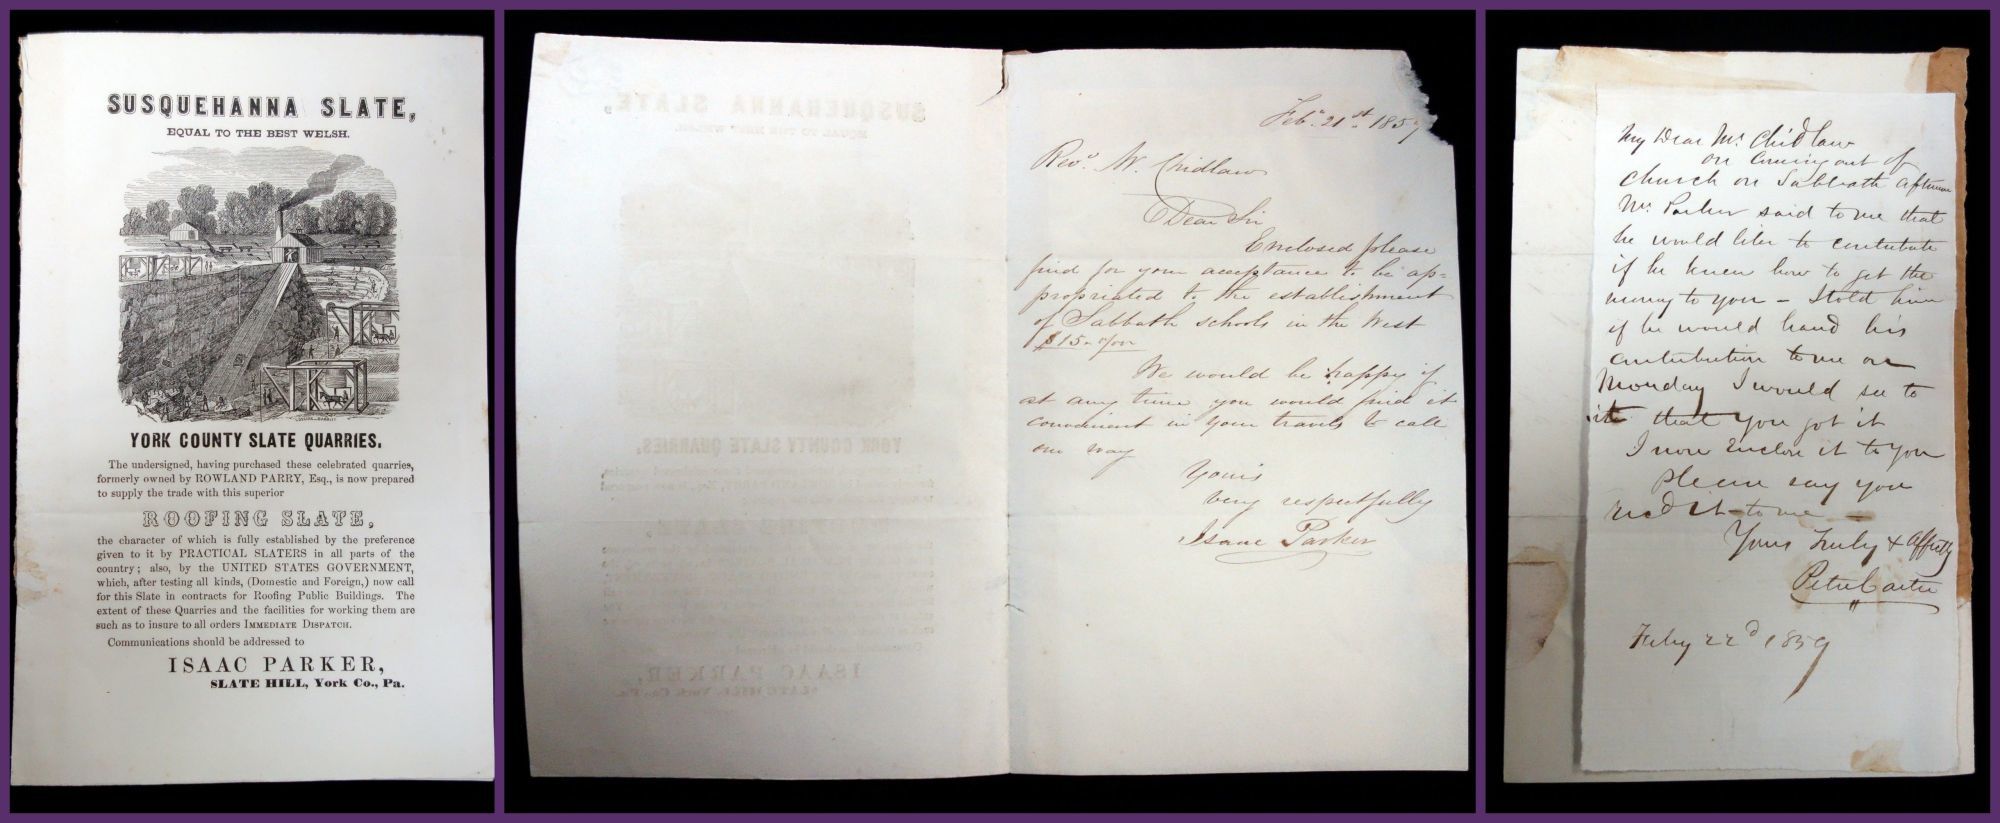 SUSQUEHANNA SLATE,
EQUAL TO THE BEST WELSH.
YORK COUNTY SLATE QUARRIES.
The undersigned, having purchased these celebrated quarries,
formerly owned by ROWLAND PARRY, Esq., is now prepared
to supply the trade with this superior
ROOFING SLATE,
the character of which is fully established by the preference
given to it by PRACTICAL SLATERS in all parts of the
country; also, by the UNITED STATES GOVERNMENT,
which, after testing all kinds, (Domestic and Foreign,) now call
for this Slate in contracts for Roofing Public Buildings. The
extent of these Quarries and the facilities for working them are
such as to insure to all orders IMMEDIATE DISPATCH.
Communications should be addressed to
ISAAC PARKER,
SLATE HILL, York Co., Pa.
Feb. 21st 1859
Revd. W. Chidlaw
Dear Sir
Enclosed please
find for your acceptance to be ap=
propriated to the establishment
of Sabbath schools in the West
$15
We would be happy if
at any time you would find it
convenient in your travels to call
our way
Yours
very respectfully
Isaac Parker
My Dear Mr. Chidlaw
on coming out of
church on Sabbath afternoon
Mr. Parker said to me that
he would like to contribute
if he knew how to get the
money to you - I told him
if he would hand his
contribution to me on
Monday I would see to
it that you got it
I now enclose it to you
please say you
recd it to me -
Yours Truly & Affectly
Peter Carter
Feby 22d 1859